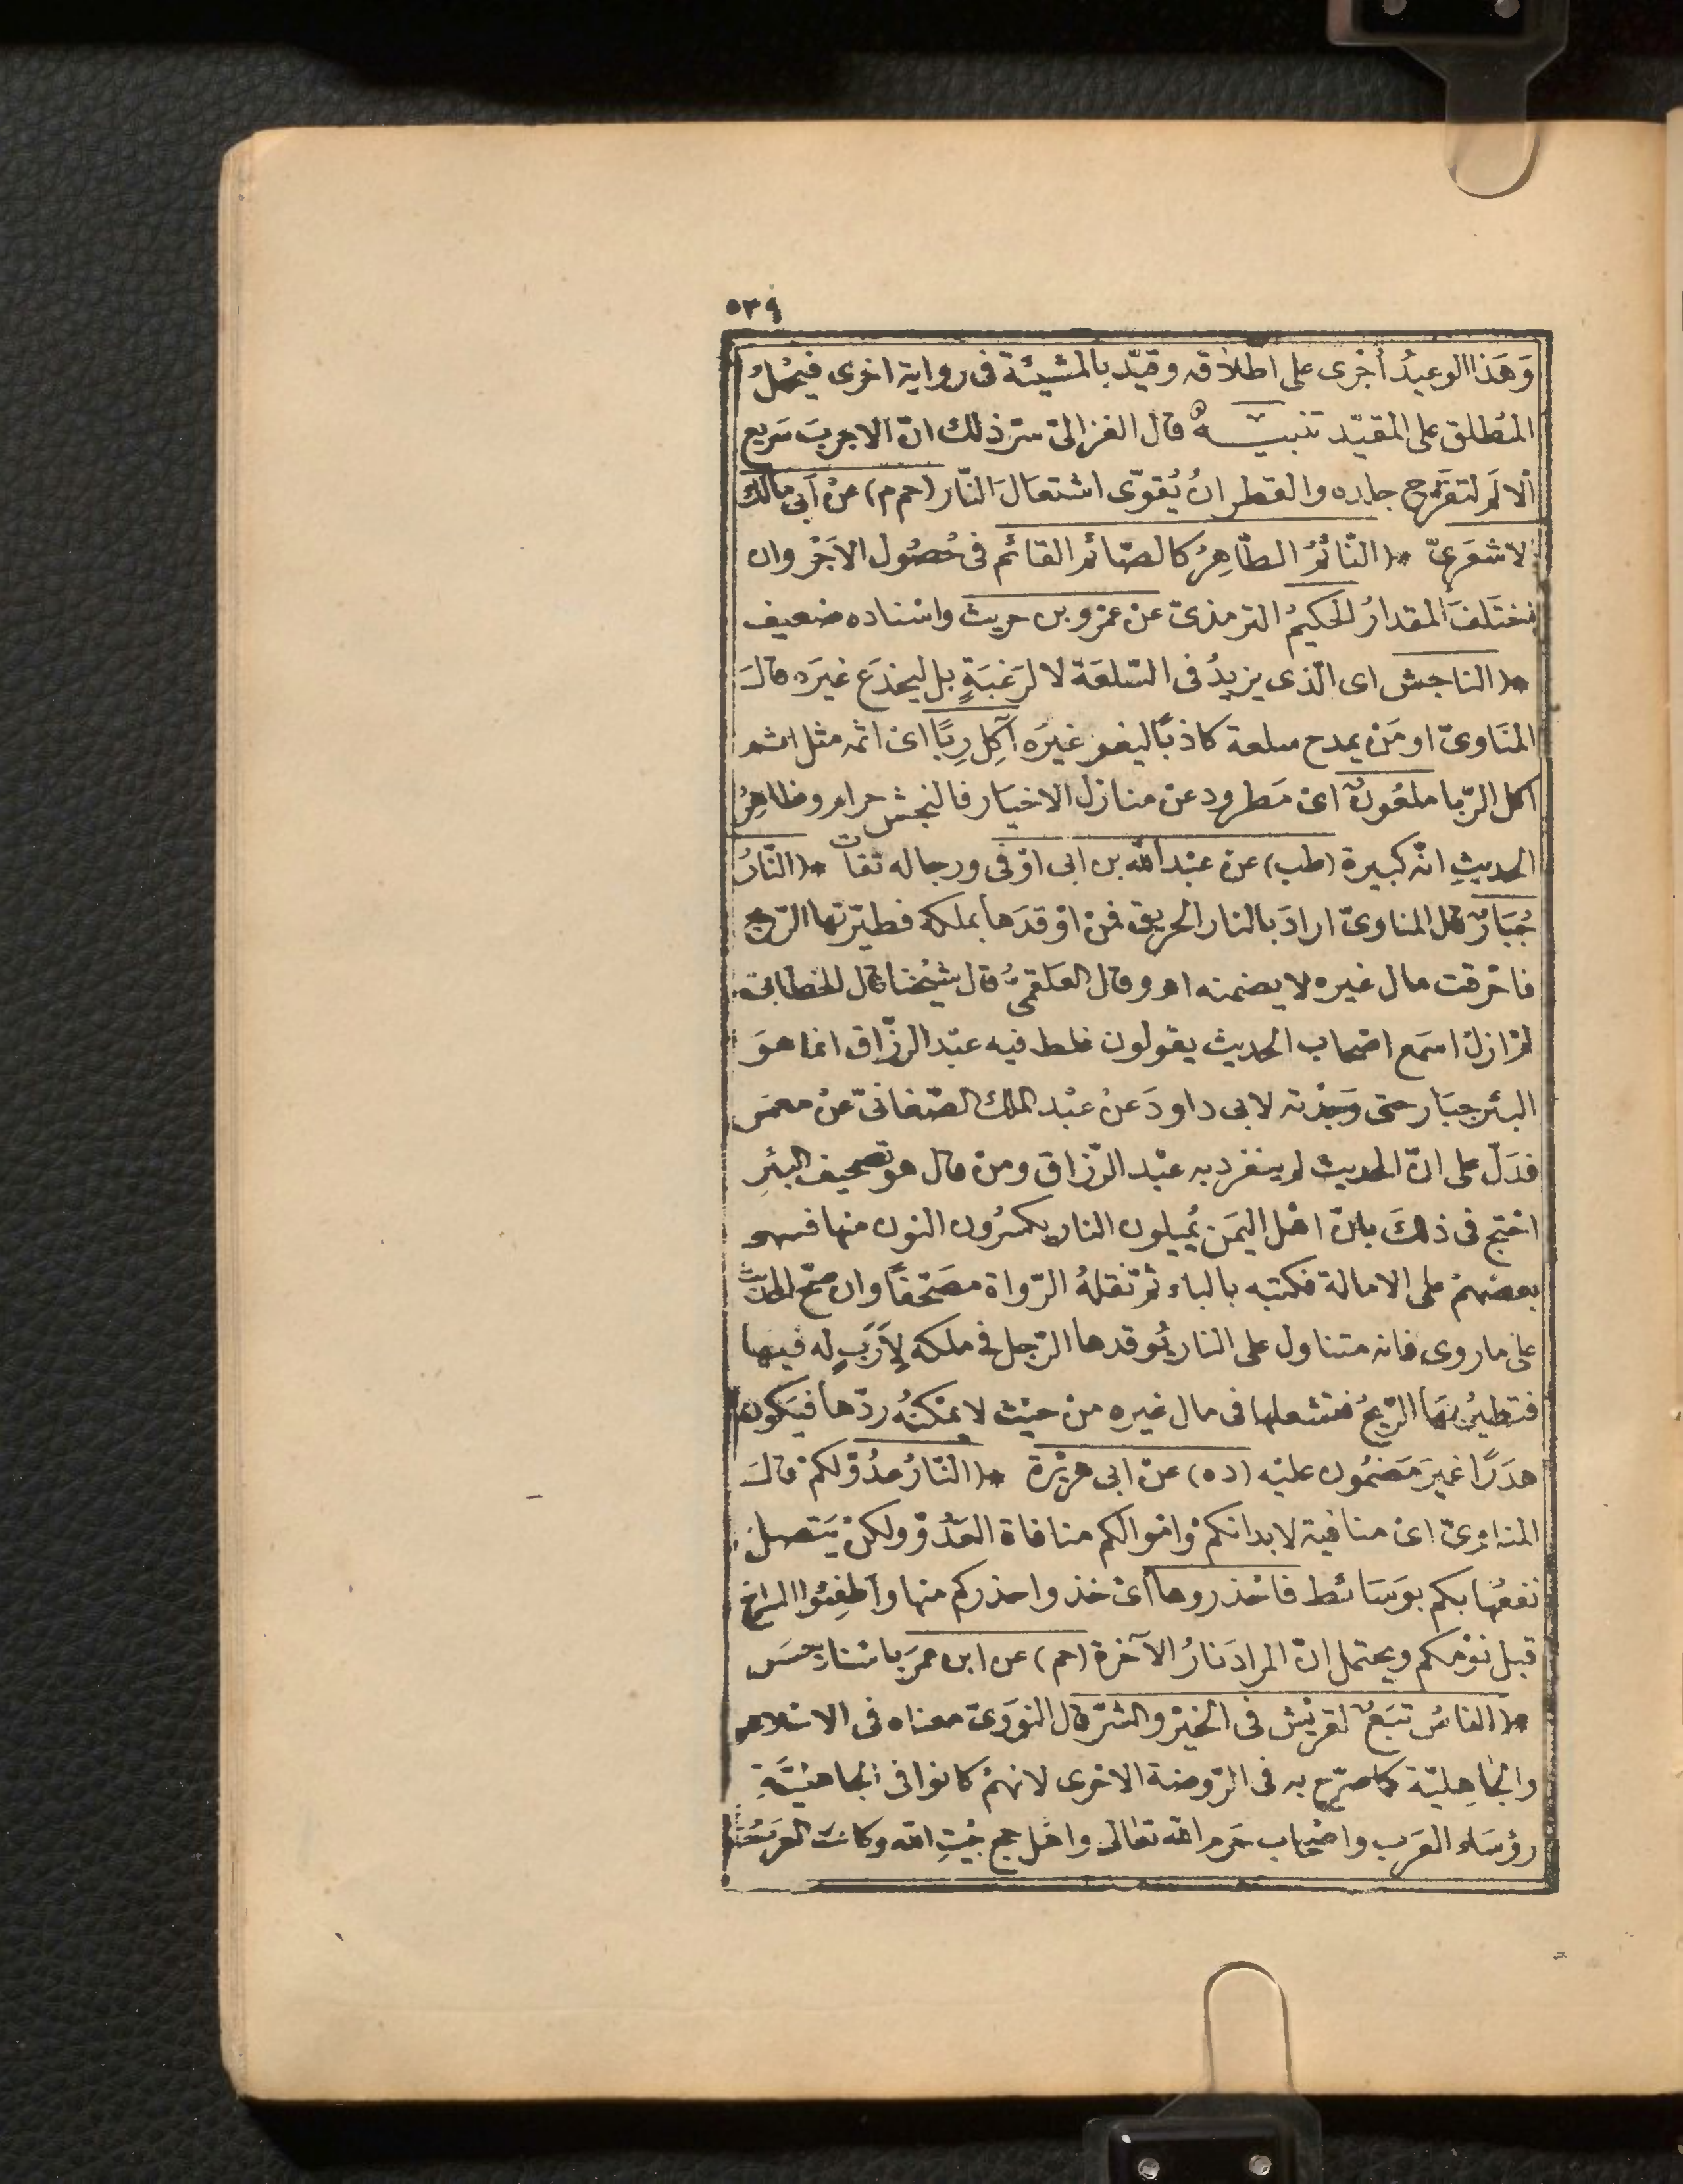 ٥٣٩
وَهَذا الوعيدُ أجْرى على اطلاقه وقيّد بالمشيئة فى رواية اخرى فيحْمَلُ
المُطلق على المقيّد تنبيــه قال الغزالىّ سرّ ذلك انّ الاجربَ سَريع
الالَم لتقرّح جلده والقطران يُقوّى اشتعَالَ النّار (حم م) عنْ أبى مالك
الاشعَرِىّ * (النّائمُ الطّاهِرُ كالصّائم القائم فى حُصُول الاَجْر وان
اختَلَفَ المقدارُ الحَكيمُ الترمذىّ عنْ عمْرو بن حريث واسْناده ضعيف
* (الناجش اى الّذى يزيدُ فى السّلعَة لا لرَغبَةٍ بل ليخدَع غيَره قالَ
المنَاوىّ او مَنْ يمدح سلعة كاذبًا ليغر غيرَه آكِل رِبًا اىْ اثمه مثل اثم
اكل الرّبا ملعُونٌ اىْ مَطرود عنْ منازل الاخيَار فالنجش حرام وظاهِرُ
الحديثِ انّه كبيرة (طب) عنْ عبْد الله بن ابى اوْفى ورجاله ثقات * (النّارُ
جُبَارٌ قال المناوىّ ارادَ بالنار الحريق فمنْ اوْقدَها بملكه فطيّرتها الرّيح
فاحْرقت مال غيره لا يضمنه اه وقال العلقمىُّ قال شيْخنا قال الخطابىّ
لمْ ازلْ اسمَع اصْحاب الحديث يقولون غلط فيه عبْد الرزّاق انما هوَ
البئر جبَار حتى وَجدْته لابى داودَ عنْ عبْد الملك الصّغانىّ عنْ معمَر
فدَلّ على انّ الحديث لم ينفرد به عبْد الرّزاق ومنْ قال هو تصحيف البئرِ
احْتج فى ذلكَ بانّ اهْل اليمَن يُميلون النار يكسُرون النون منها فسمع
بعضهمْ على الامالة فكتبه بالباء ثم نقلهُ الرّواة مصَحّفًا وان صَحّ الحديث
على ما روى فانه متناول على النار يُوقدها الرّجل فى ملكه لِأَرَبٍ له فيها
فتطيرُ بهَا الرّيحُ فتشعلها فى مال غيره منْ حيْث لا يمْكنُه ردّها فيَكون
هدَرًا غيرَ مَضمُون عليْه (ده) عنْ ابى هريْرة * (النّارُ عدُوّ لكمْ قالَ
المناوىّ اىْ منافية لابدانكمْ وامْوالكم منافاة العَدُوّ ولكنْ يَتصل
نفعُها بكم بوَسَائط فاحْذروها اىْ خذوا حذركم منها وأطفِئُوا السراج
قبل نوْمكم ويحتمل انّ المرادَ نارُ الآخرة (حم) عن ابن عمرَ باسْناد حسَن
* (الناسُ تبَعٌ لقريْش فى الخيْر والشرّ قال النوَوىّ معْناه فى الاسْلام
والجَاهِليّة كما صرّح به فى الرّوضة الاخرى لانهمْ كانوا فى الجاهليّةِ
رؤسَاء العَرَب واصْحاب حَرم الله تعَالى واهْل حج بيْتِ الله وكانت العَرَب